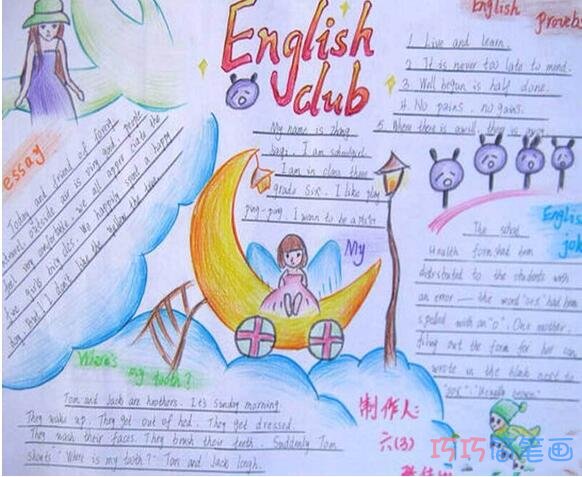 English
club
English proverbs
1. Live and learn.
2. It is never too late to mend.
3. Well begun is half done.
4. No pains, no gains.
5. Where there is a will, there is away
essay
Today and friend of forest
travel, outside air is very good, people
feel very comfortable, we all appear
the girls
dog. And I don't like the
My name is zhang
I am schoolgirl.
I am in class three
grade six. I like play
ping-ping. I wann to be a
My
English
joke
The school
Health form had been
distributed to the students with
an error — the word "sex" had been
spelled with an "o". One mother,
filing out the form for her son
wrote in the blank next to
Where's
my tooth?
Tom and Jack are brothers. It's Sunday morning.
They wake up. They get out of bed. They get dressed.
They wash their faces. They brush their teeth. Suddenly Tom
shouts "Where is my tooth?" Tom and Jack laugh.
制作人:
六(3)
巧巧简笔画